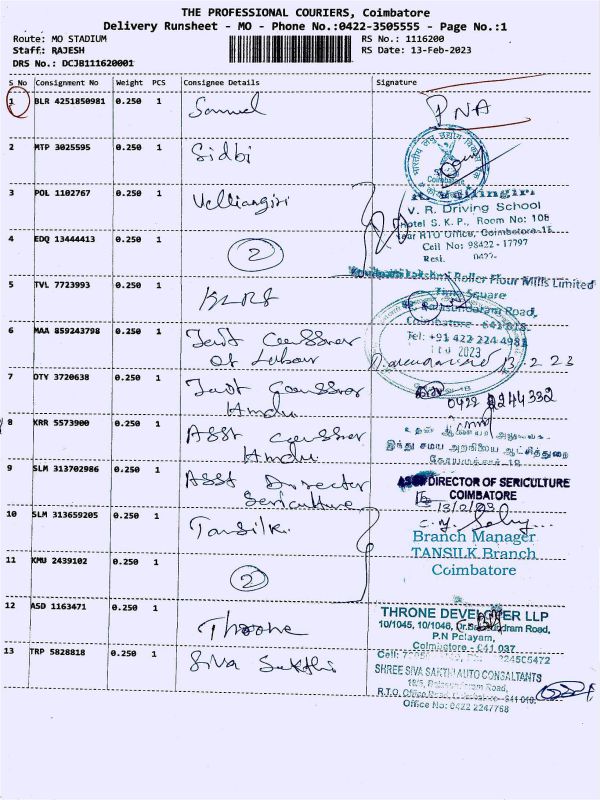 THE PROFESSIONAL COURIERS, Coimbatore
Delivery Runsheet - MO - Phone No.:0422-3505555 - Page No.:1
Route: MO STADIUM
RS No.: 1116200
Staff: RAJESH
RS Date: 13-Feb-2023
DRS No.: DCJB111620001
S No Consignment No Weight PCS Consignee Details Signature
1 BLR 4251850981 0.250 1 Samuel PNA
2 MTP 3025595 0.250 1 Sidbi
Coimbatore
3 POL 1102767 0.250 1 Velliangiri
V. R. Driving School
Hotel S. K. P., Room No: 106
Near RTO Office, Coimbatore-18
Cell No: 98422 - 17797
Resi. 0422-
4 EDQ 13444413 0.250 1 2
Lakshmi Roller Flour Mills Limited
5 TVL 7723993 0.250 1 KLRF
Square
Road,
Coimbatore - 641 018.
6 MAA 859243798 0.250 1 Joint Commssner
of Labour
Tel: +91 422 224 4981
2023
13.2.23
7 DTY 3720638 0.250 1 Joint Commssner
Hmdu
0422 2244332
8 KRR 5573900 0.250 1 Asst Commssner
Hmdu
இந்து சமய அறநிலைய ஆட்சித்துறை
9 SLM 313702986 0.250 1 Asst Director
Sericulture
ASST DIRECTOR OF SERICULTURE
COIMBATORE
13/2/23
10 SLM 313659205 0.250 1 Tansilk
Branch Manager
TANSILK Branch
Coimbatore
11 KMU 2439102 0.250 1 2
12 ASD 1163471 0.250 1 Throne
THRONE DEVELOPER LLP
10/1045, 10/1046, Dr. Road,
P.N Palayam,
Coimbatore - 641 037
Cell:
13 TRP 5828818 0.250 1 Siva Sakthi
SHREE SIVA SAKTHI AUTO CONSALTANTS
Road,
R.T.O. Office Road, Coimbatore - 641 018.
Office No: 0422 2247768